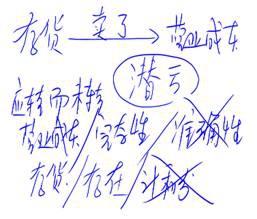 存货 卖了 → 营业成本
潜亏
应转而未转
营业成本/完整性/准确性
存货/存在/计